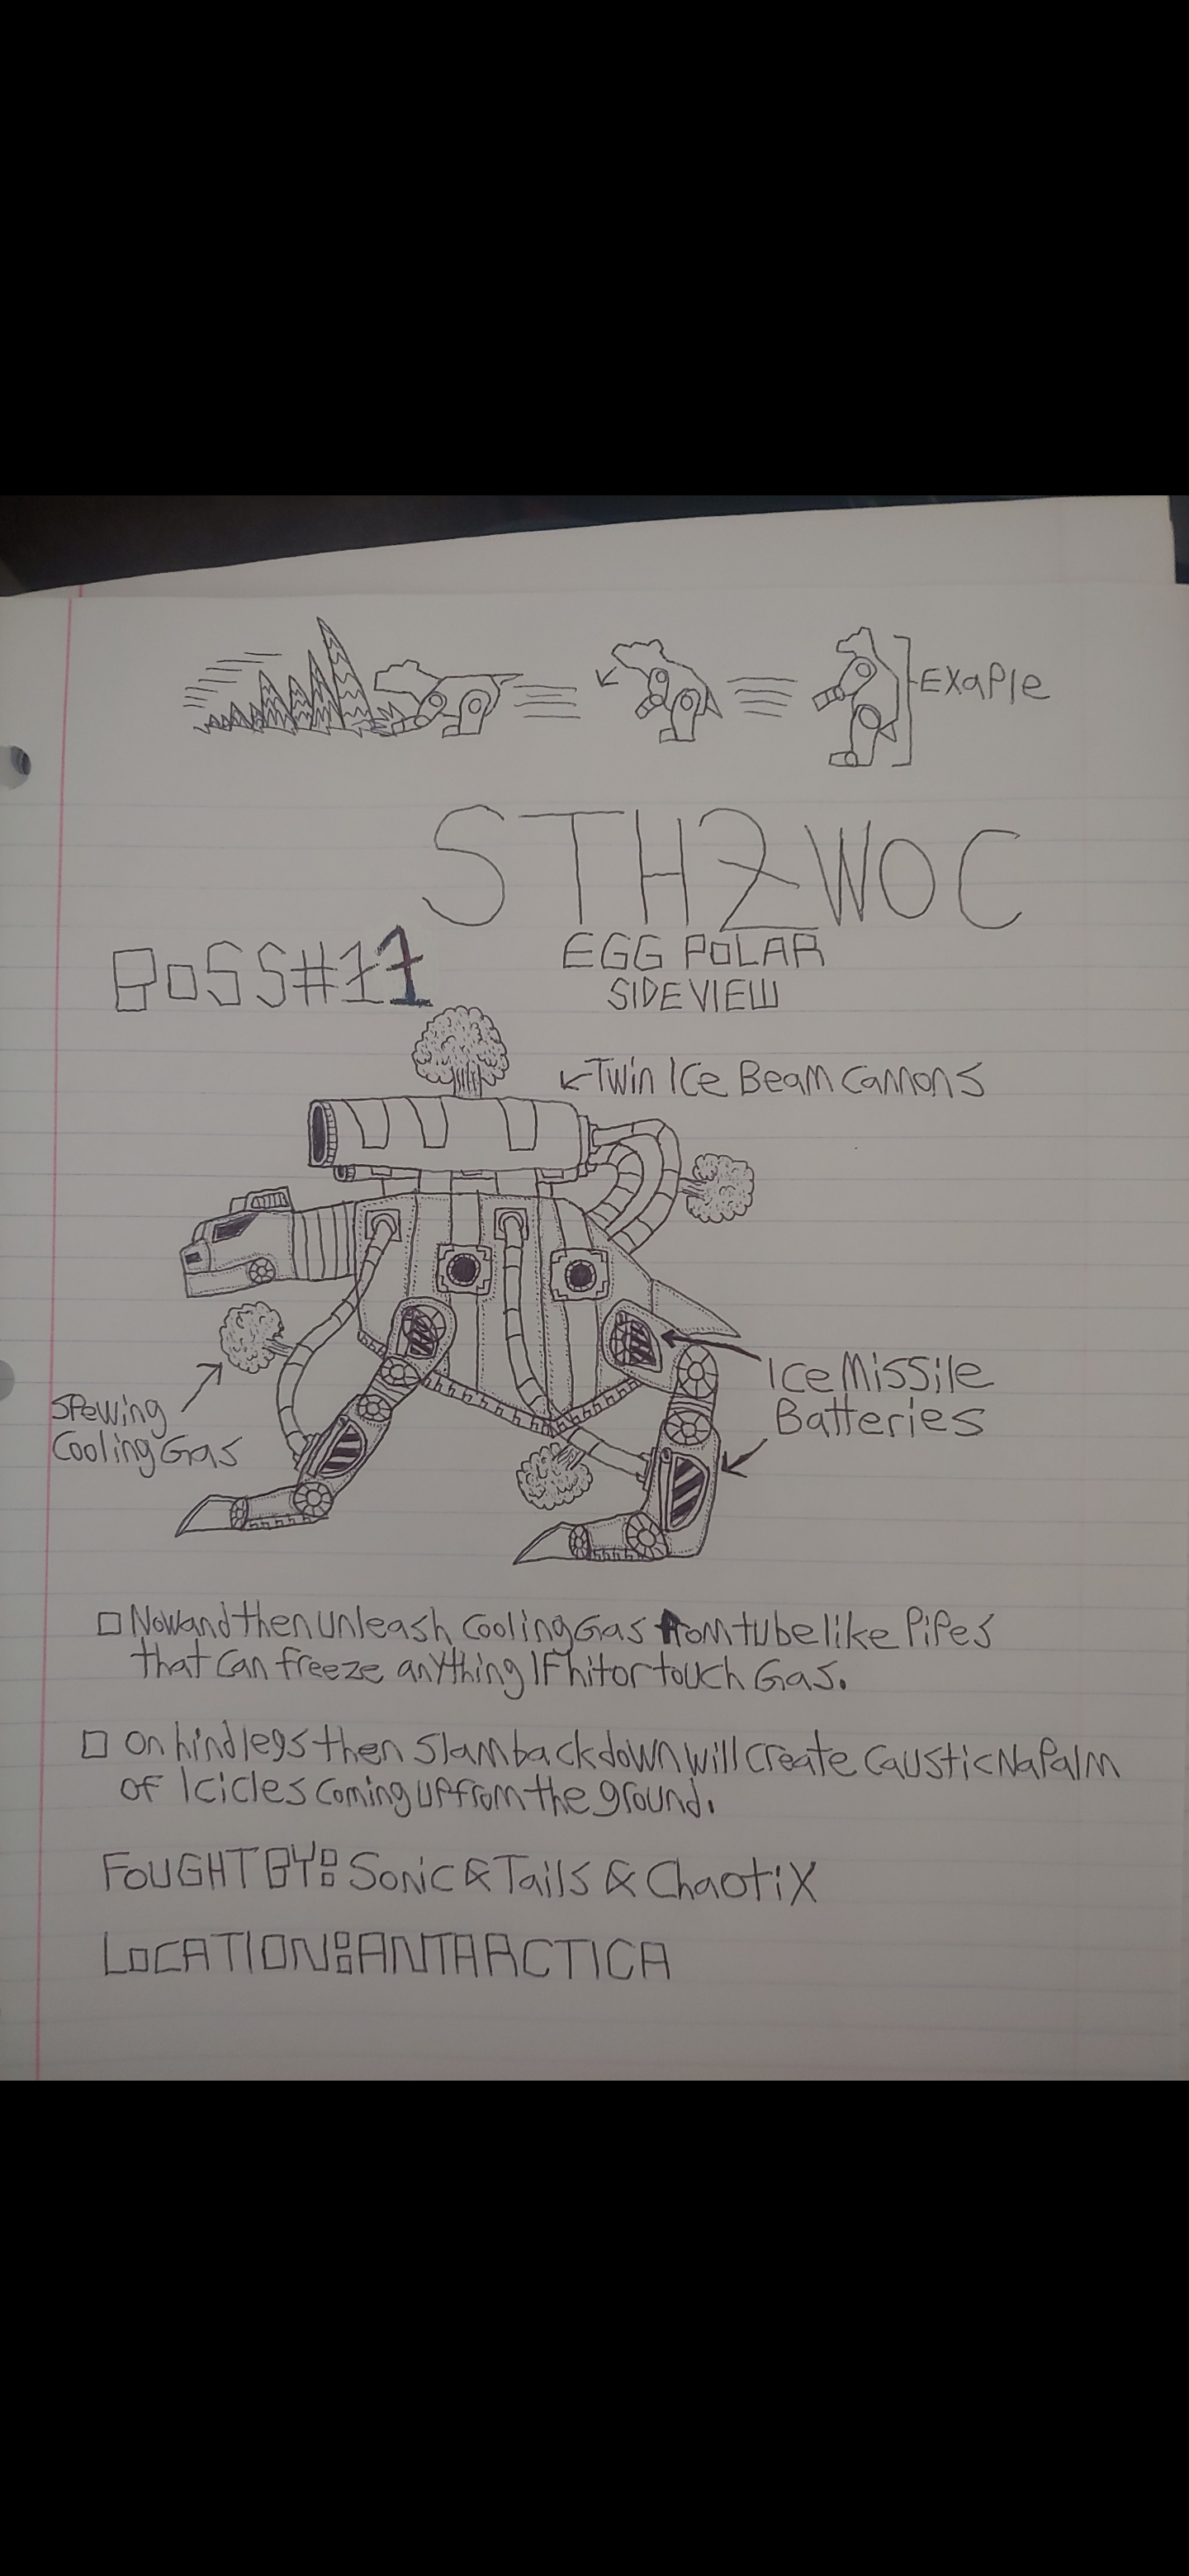 Exaple
STH2WOC
BOSS#11
EGG POLAR
SIDEVIEW
Twin Ice Beam Cannons
Ice Missile
Batteries
Spewing
Cooling Gas
Now and then unleash Cooling Gas from tube like Pipes
that can freeze anything IF hit or touch Gas.
On hind legs then slam back down will create caustic Napalm
of Icicles coming up from the ground.
FOUGHT BY: Sonic & Tails & Chaotix
LOCATION: ANTARCTICA